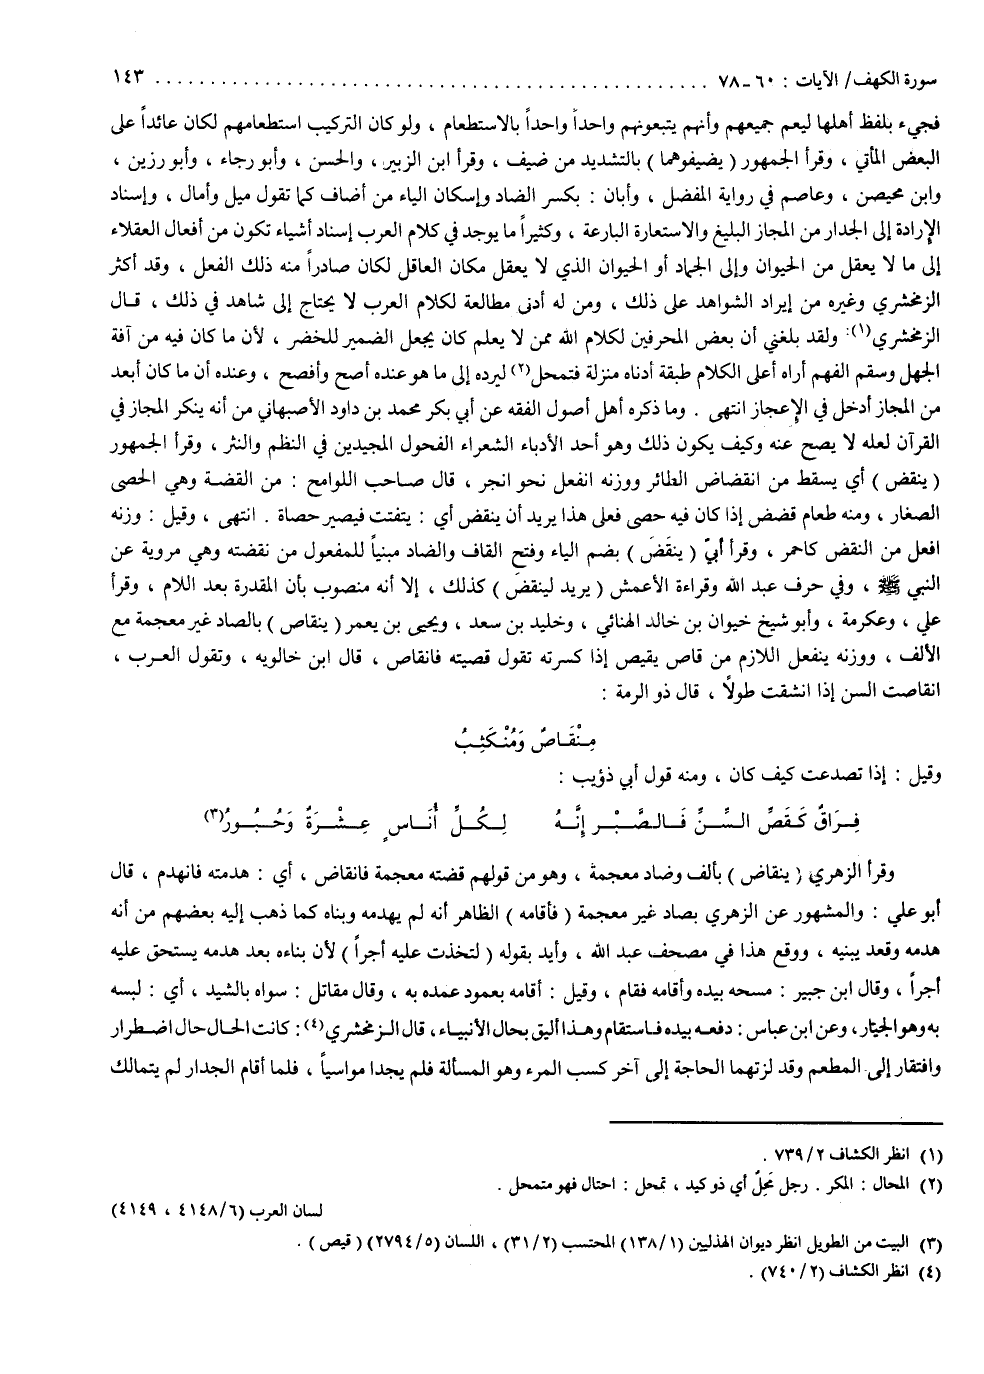 سورة الكهف/ الآيات : ٦٠-٧٨ ........................................................ ١٤٣
فجيء بلفظ أهلها ليعم جميعهم وأنهم يتبعونهم واحداً واحداً بالاستطعام ، ولو كان التركيب استطعامهم لكان عائداً على
البعض المأتي ، وقرأ الجمهور ( يضيفوهما ) بالتشديد من ضيف ، وقرأ ابن الزبير ، والحسن ، وأبو رجاء ، وأبو رزين ،
وابن محيصن ، وعاصم في رواية المفضل ، وأبان : بكسر الضاد وإسكان الياء من أضاف كما تقول ميل وأمال ، وإسناد
الإرادة إلى الجدار من المجاز البليغ والاستعارة البارعة ، وكثيراً ما يوجد في كلام العرب إسناد أشياء تكون من أفعال العقلاء
إلى ما لا يعقل من الحيوان وإلى الجماد أو الحيوان الذي لا يعقل مكان العاقل لكان صادراً منه ذلك الفعل ، وقد أكثر
الزمخشري وغيره من إيراد الشواهد على ذلك ، ومن له أدنى مطالعة لكلام العرب لا يحتاج إلى شاهد في ذلك ، قال
الزمخشري(١): ولقد بلغني أن بعض المحرفين لكلام الله ممن لا يعلم كان يجعل الضمير للخضر ، لأن ما كان فيه من آفة
الجهل وسقم الفهم أراه أعلى الكلام طبقة أدناه منزلة فتمحل(٢) ليرده إلى ما هو عنده أصح وأفصح ، وعنده أن ما كان أبعد
من المجاز أدخل في الإعجاز انتهى . وما ذكره أهل أصول الفقه عن أبي بكر محمد بن داود الأصبهاني من أنه ينكر المجاز في
القرآن لعله لا يصح عنه وكيف يكون ذلك وهو أحد الأدباء الشعراء الفحول المجيدين في النظم والنثر ، وقرأ الجمهور
( ينقض ) أي يسقط من انقضاض الطائر ووزنه انفعل نحو انجر ، قال صاحب اللوامح : من القضة وهي الحصى
الصغار ، ومنه طعام قضض إذا كان فيه حصى فعلى هذا يريد أن ينقض أي : يتفتت فيصير حصاة . انتهى ، وقيل : وزنه
افعل من النقض كاحمر ، وقرأ أبيّ ( ينقَضَ ) بضم الياء وفتح القاف والضاد مبنياً للمفعول من نقضته وهي مروية عن
النبي ﷺ ، وفي حرف عبد الله وقراءة الأعمش ( يريد لينقضَ ) كذلك ، إلا أنه منصوب بأن المقدرة بعد اللام ، وقرأ
علي ، وعكرمة ، وأبو شيخ خيوان بن خالد الهنائي ، وخليد بن سعد ، ويحيى بن يعمر ( ينقاص ) بالصاد غير معجمة مع
الألف ، ووزنه ينفعل اللازم من قاص يقيص إذا كسرته تقول قصيته فانقاص ، قال ابن خالويه ، وتقول العرب ،
انقاصت السن إذا انشقت طولاً ، قال ذو الرمة :
مِنْقَاصٌ وَمُنْكَثِبُ
وقيل : إذا تصدعت كيف كان ، ومنه قول أبي ذؤيب :
فِرَاقٌ كَقَصِّ السِّنِّ فَالصَّبْرِ إنَّهُ لِكُلِّ أُنَاسٍ عِشْرَةٌ وَحُبُورُ(٣)
وقرأ الزهري ( ينقاض ) بألف وضاد معجمة ، وهو من قولهم قضته معجمة فانقاض ، أي : هدمته فانهدم ، قال
أبو علي : والمشهور عن الزهري بصاد غير معجمة ( فأقامه ) الظاهر أنه لم يهدمه وبناه كما ذهب إليه بعضهم من أنه
هدمه وقعد يبنيه ، ووقع هذا في مصحف عبد الله ، وأيد بقوله ( لتخذت عليه أجراً ) لأن بناءه بعد هدمه يستحق عليه
أجراً ، وقال ابن جبير : مسحه بيده وأقامه فقام ، وقيل : أقامه بعمود عمده به ، وقال مقاتل : سواه بالشيد ، أي : لبسه
به وهو الجيار ، وعن ابن عباس : دفعه بيده فاستقام وهذا أليق بحال الأنبياء ، قال الزمخشري(٤) : كانت الحال حال اضطرار
وافتقار إلى المطعم وقد لزتهما الحاجة إلى آخر كسب المرء وهو المسألة فلم يجدا مواسياً ، فلما أقام الجدار لم يتمالك
(١) انظر الكشاف ٧٣٩/٢ .
(٢) المحال : المكر . رجل مَحِلٌ أي ذو كيد ، تمحل : احتال فهو متمحل .
لسان العرب (٤١٤٨/٦ ، ٤١٤٩)
(٣) البيت من الطويل انظر ديوان الهذليين (١٣٨/١) المحتسب (٣١/٢) ، اللسان (٢٧٩٤/٥) ( قيص ) .
(٤) انظر الكشاف (٧٤٠/٢) .